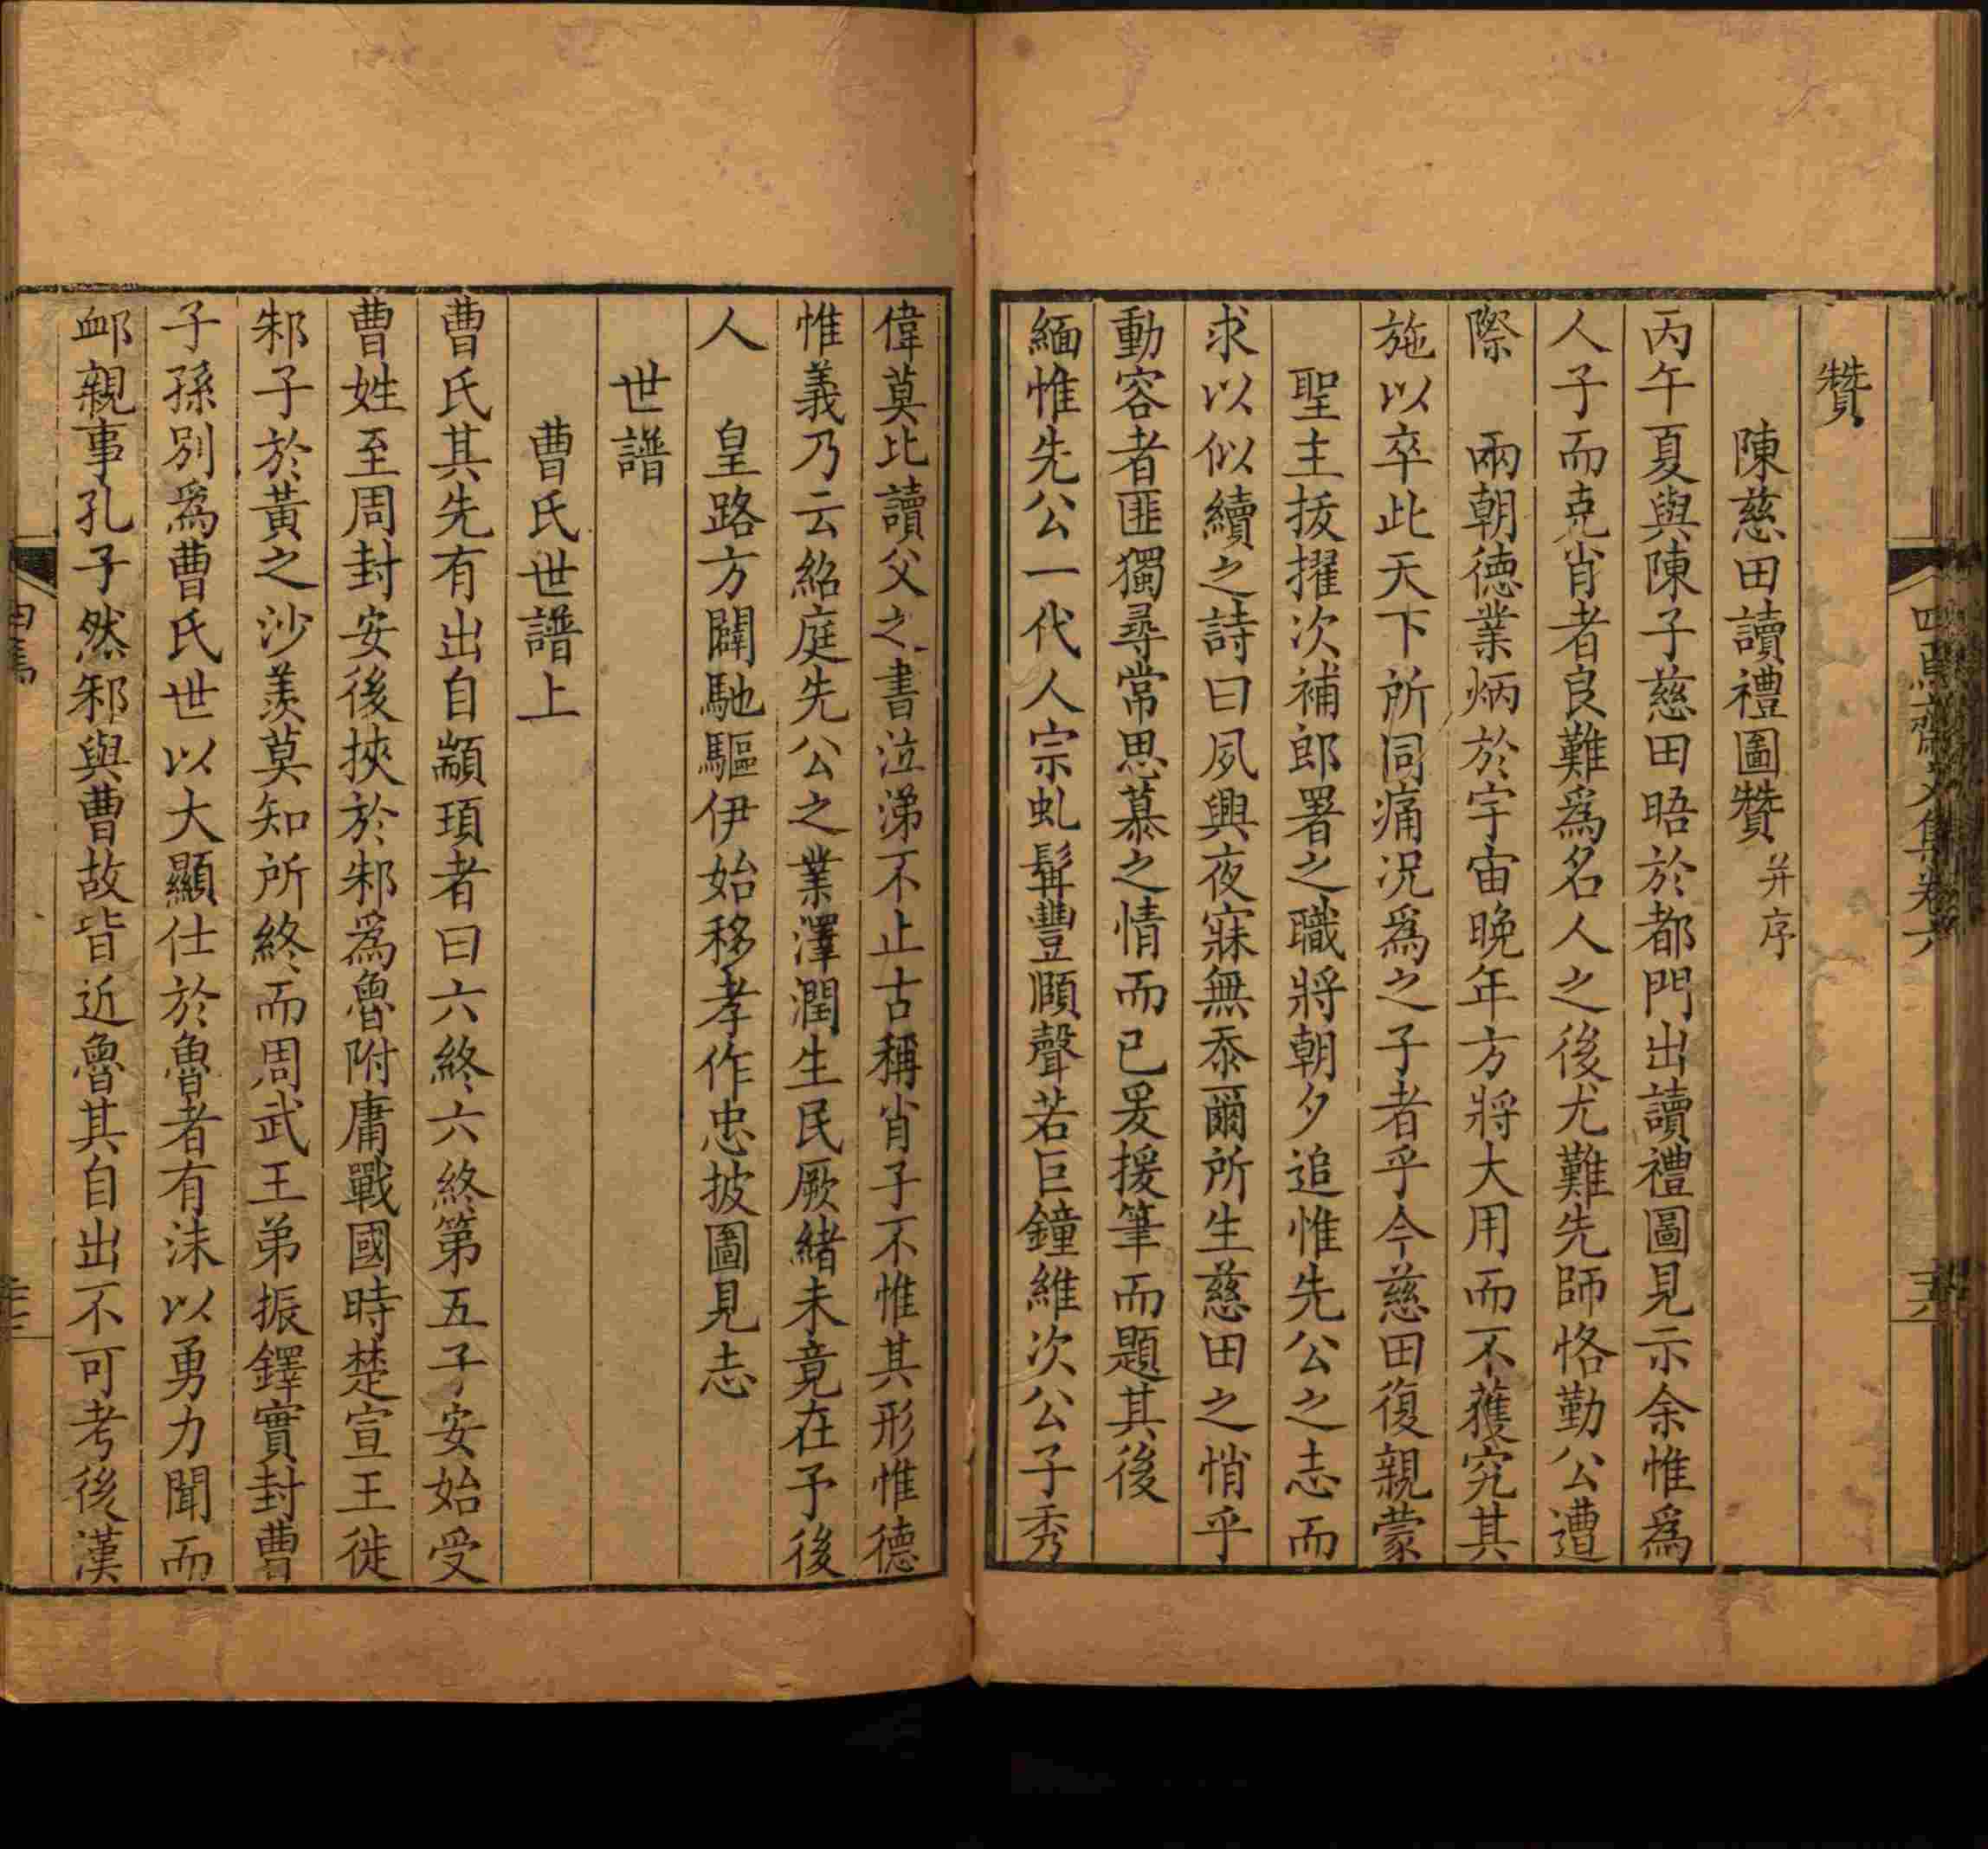 四焉齋文集卷六
贊
陳慈田讀禮圖贊 并序
丙午夏與陳子慈田晤於都門出讀禮圖見示余惟爲
人子而克肖者良難爲名人之後尤難先師恪勤公遭
際 兩朝德業炳於宇宙晚年方將大用而不獲究其
施以卒此天下所同痛况爲之子者乎今慈田復親蒙
聖主拔擢次補郎署之職將朝夕追惟先公之志而
求以似續之詩曰夙興夜寐無忝爾所生慈田之悄乎
動容者匪獨尋常思慕之情而已爰援筆而題其後
緬惟先公一代人宗虬髯豐頤聲若巨鐘維次公子秀
偉莫比讀父之書泣涕不止古稱肖子不惟其形惟德
惟義乃云紹庭先公之業澤潤生民厥緒未竟在予後
人 皇路方闢馳驅伊始移孝作忠披圖見志
世譜
曹氏世譜上
曹氏其先有出自顓頊者曰六終六終第五子安始受
曹姓至周封安後挾於邾爲魯附庸戰國時楚宣王徙
邾子於黃之沙羡莫知所終而周武王弟振鐸實封曹
子孫別爲曹氏世以大顯仕於魯者有沬以勇力聞而
卹親事孔子然邾與曹故皆近魯其自出不可考後漢